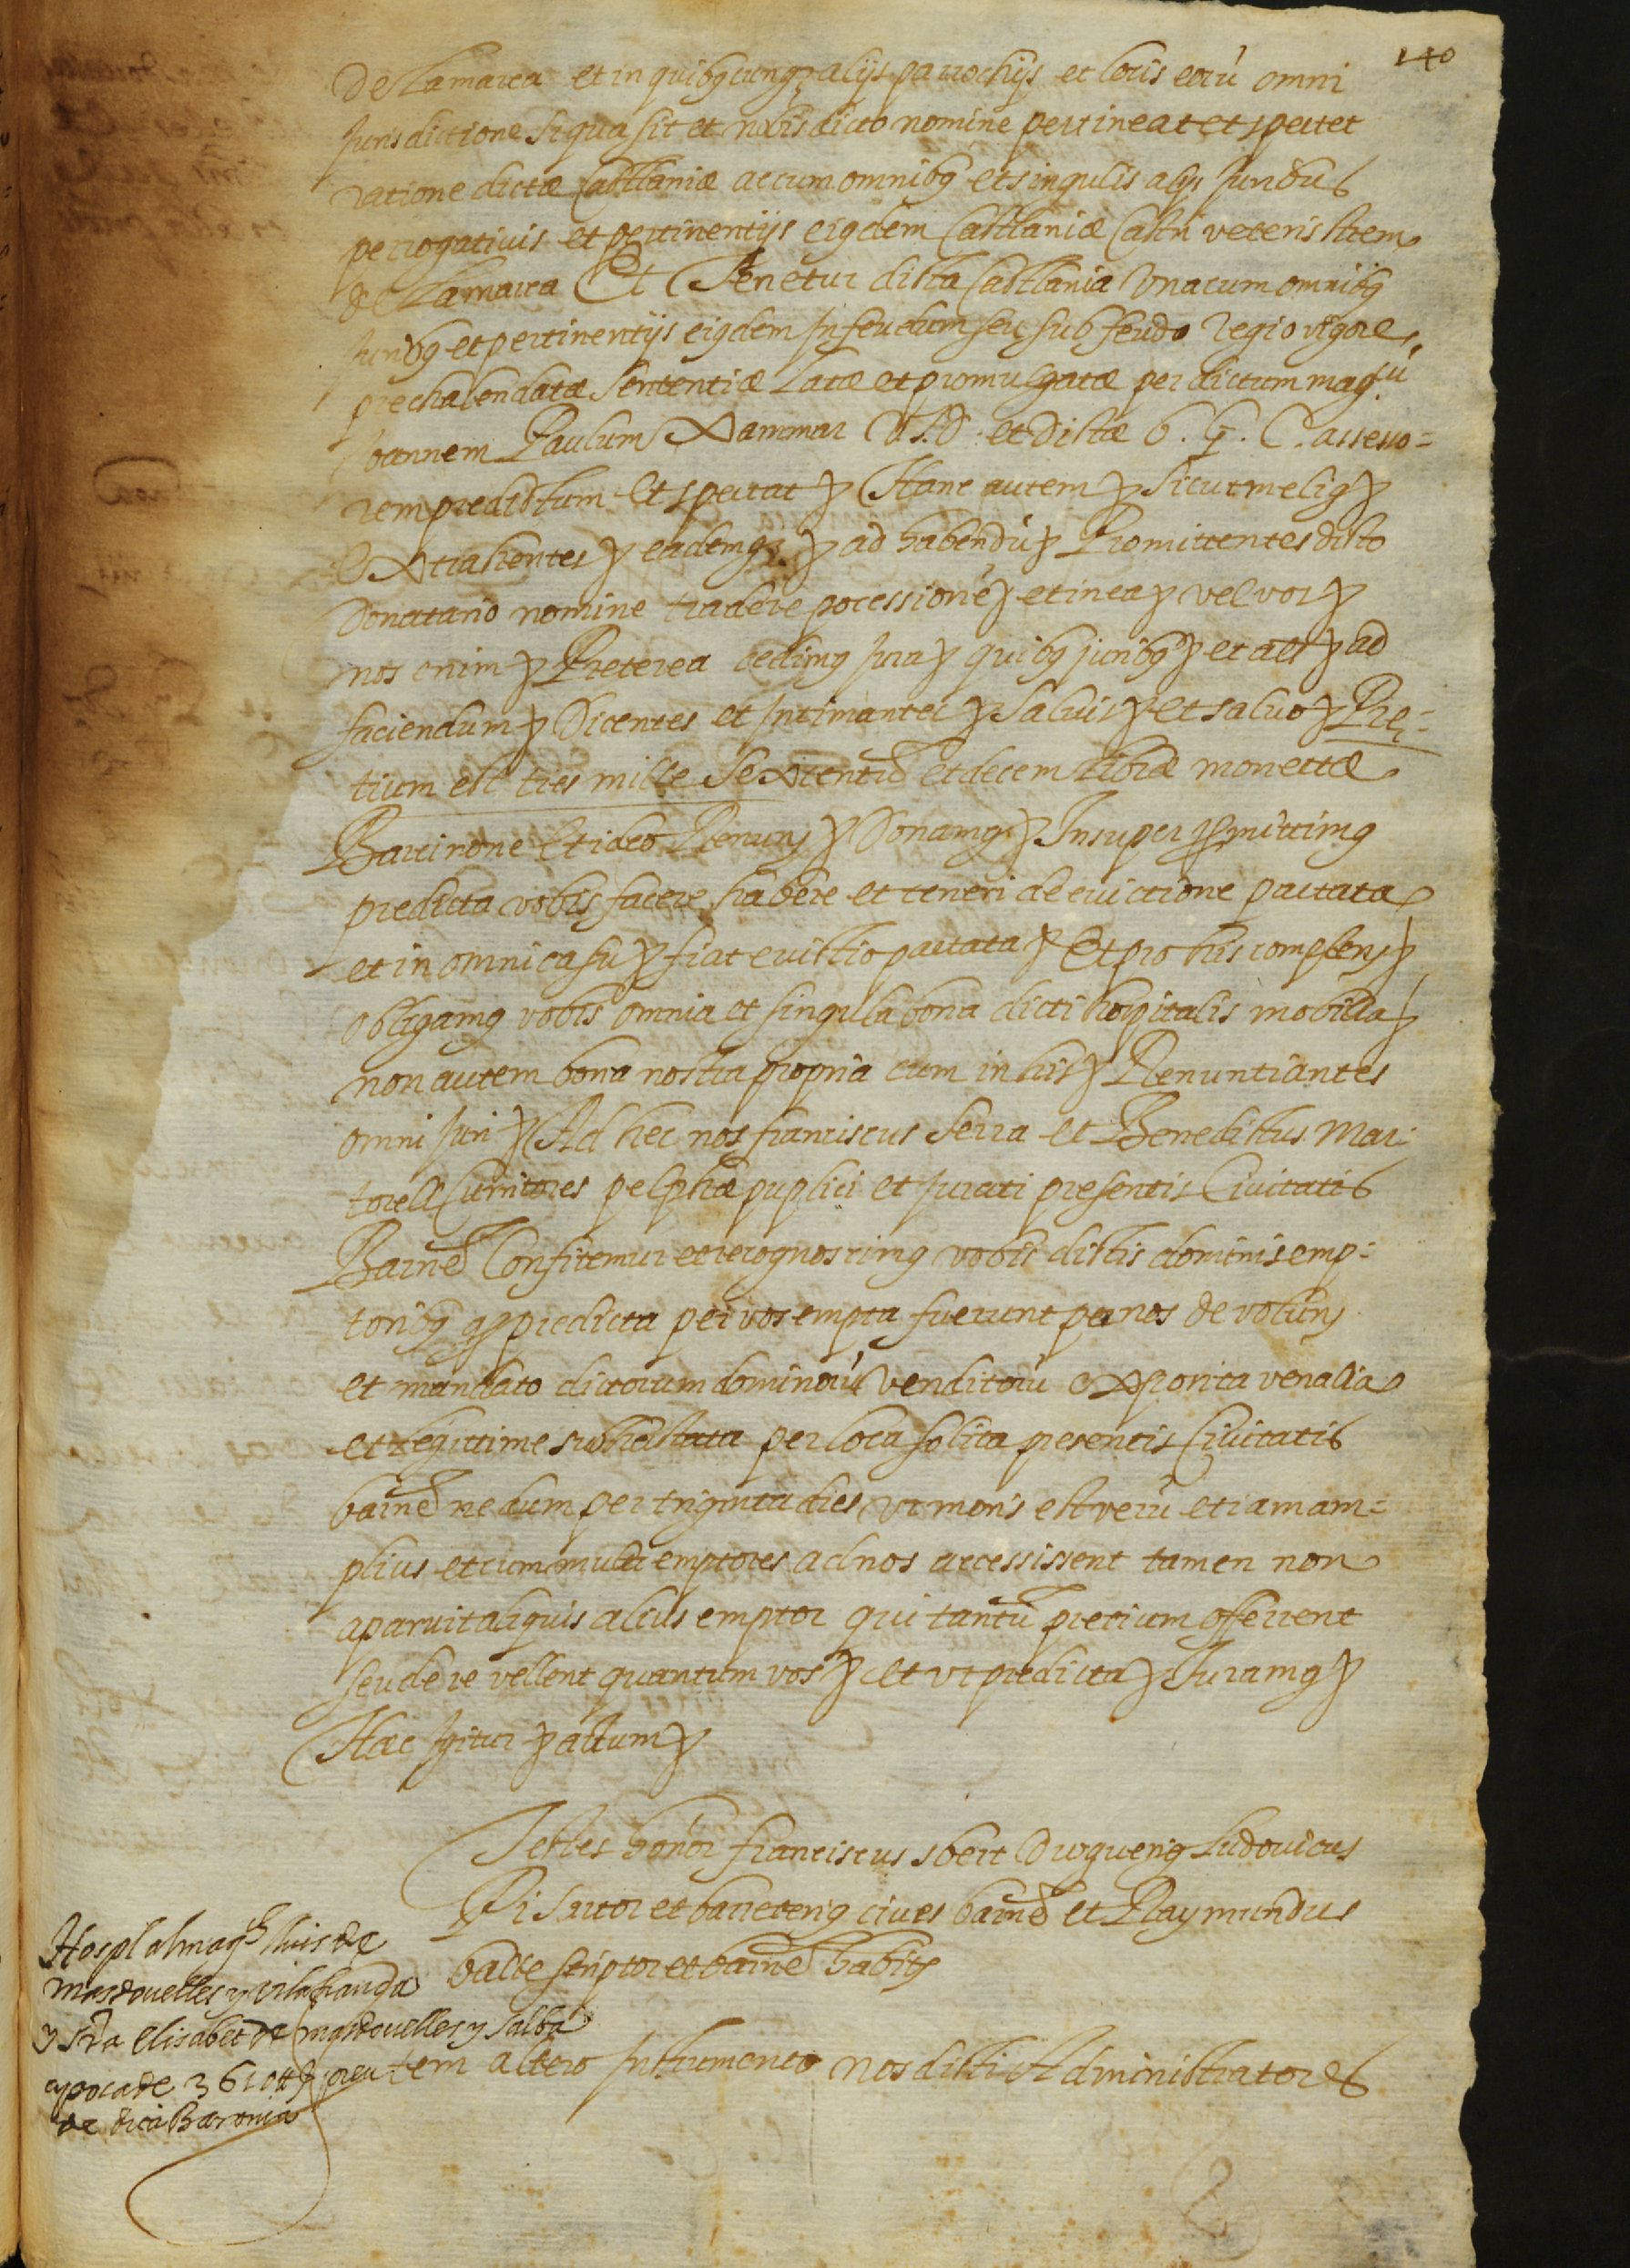 140
de Lamarca et in quibuscunq; alijs parrochijs et locis eorũ omni
Jurisdictione si qua sit et nobis dicto nomine pertineat et spectet
ratione dictæ Castlaniæ ac cum omnibus et singulis alijs Juribus
perrogativis et pertinentijs eisdem Castlaniæ Castri veteris Item
de Lamarca Et Tenetur dicta Castlania Vnacum omnibus
Juribus et pertinentijs eisdem Infeudum seu sub feudo Regio vigore
prechalendatæ Sententiæ Latæ et promulgatæ per dictum magcũ
Joannem Paulum Xammar V.J.D. et dictæ b. G. C. assesso=
rem predictum Et spectat & Hanc autem & Sicut melius &
Extrahentes & eademq; & ad habendũ & Promittentes dicto
Donatario nomine tradere pocessionẽ & et in ea & vel vos &
nos enim & Preterea cedimus Jura & quibus juribus & et als & ad
faciendum & Dicentes et Intimantes & Salvis & et salvo & Pre=
tium est tres mille Sexcentũ et decem Libræ monettæ
Barcinone Et ideo Renuns & Donamus & Insuper promittimus
predicta vobis facere habere et teneri de evictione pactata
et in omni casu & fiat evictio pactata & Et pro his complens &
obligamus vobis omnia et singula bona dicti hospitalis mobilia &
non autem bona nostra propria cum in his & Renuntiantes
omni Juri & Ad hec nos franciscus Serra et Benedictus Mar:
torell Curritores pelphæ puplici et Jurati presentis Civitatis
Barnẽ Confitemur et recognoscimus vobis dictis dominis emp:
toribus q predicta per vos empta fuerunt per nos de voluns
et mandato dictorum dominorũ Venditorũ exposita venalia
et Legittime subhastata per loca solita presentis Civitatis
barnẽ nedum per triginta dies, vt moris est verũ etiam am=
plius et cum multi emptores ad nos accessissent tamen non
aparuit aliquis alius emptor qui tantũ pretium offerrent
seu dere vellent quantum vos & et vt predicta & Juramus &
Hæc Igitur & actum &
Testes honor franciscus sbert Droguerius Ludovicus
Pi Sartor et barreterius cives barnẽ et Raymundus
balle scriptor et barnẽ habits
Hospl al magch lluis de
Masdovelles y Vilafranqa
y sra Elisabet de masdovelles y Salba
apoca de 3610 ₶ & preu
de dita Baronia
Item altero Instrumento nos dicti Administratores